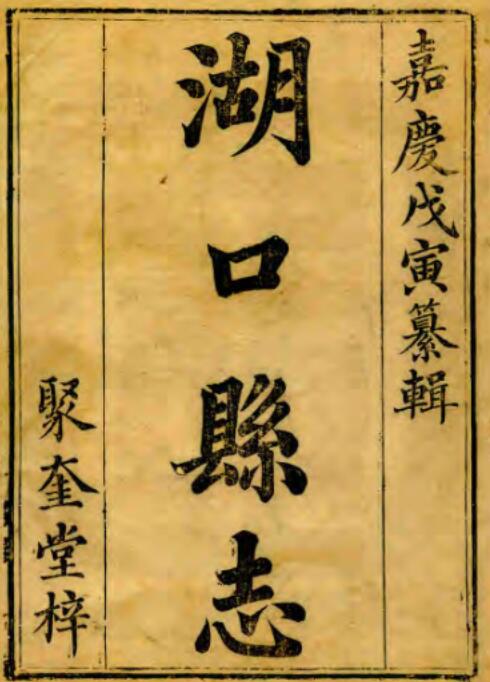 嘉慶戊寅纂輯
湖口縣志
聚奎堂梓